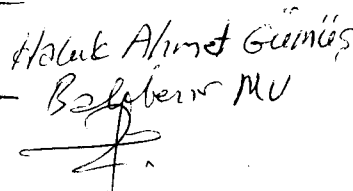 Haluk Ahmet Gümüş
Balıkesir MV